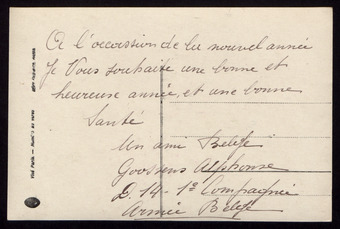 A l'occassion de la nouvel année
Je Vous souhaite une bonne et
heureuse année, et une bonne
Santé
Un ami Belge
Goossens Alphonse
D. 14 - 1º Compagnie
Armée Belge